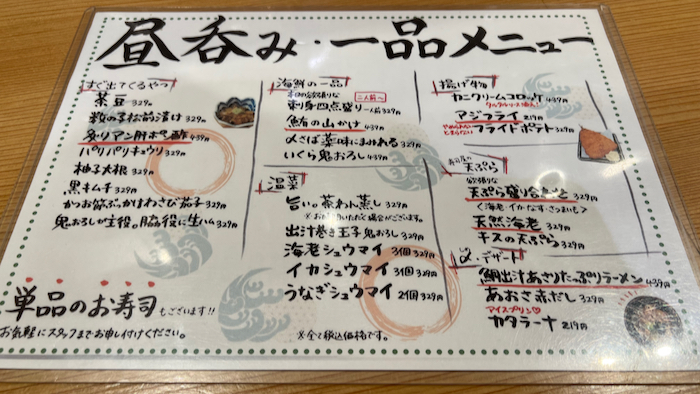 昼呑み・一品メニュー
すぐ出てくるやつ
茶豆 329円
数の子松前漬け 329円
炙りアン肝ポン酢 439円
パリパリキュウリ 329円
柚子大根 329円
黒キムチ 329円
かつお節ぶっかけわさび茄子 329円
鬼おろしが主役。脇役に生ハム 329円
単品のお寿司もございます!!
お気軽にスタッフまでお申し付けください。
海鮮の一品
本日の欲張りな
二人前〜
刺身四点盛り 一人前329円
鮪の山かけ 439円
〆さば薬味にまみれる 329円
いくら鬼おろし 439円
温菜
旨い。茶わん蒸し 329円
※お待ちいただく場合がございます。
出汁巻き玉子 鬼おろし 329円
海老シュウマイ 3個 329円
イカシュウマイ 3個 329円
うなぎシュウマイ 2個 329円
※全て税込価格です。
揚げ物
カニクリームコロッケ
439円
アジフライ 219円
やめられない とまらない フライドポテト 329円
天ぷら
欲張りな
天ぷら盛り合わせ 329円
〈海老・イカ・なす・さつまいも〉
天然海老 329円
キスの天ぷら 329円
〆・デザート
鯛出汁あさりたっぷりラーメン 439円
あおさ赤だし 329円
アイスプリン♡
カタラーナ 219円